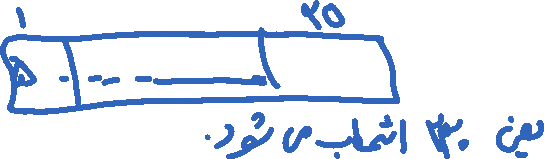 ۱ ۲۵
یعنی ۳۰ انتخاب می شود.